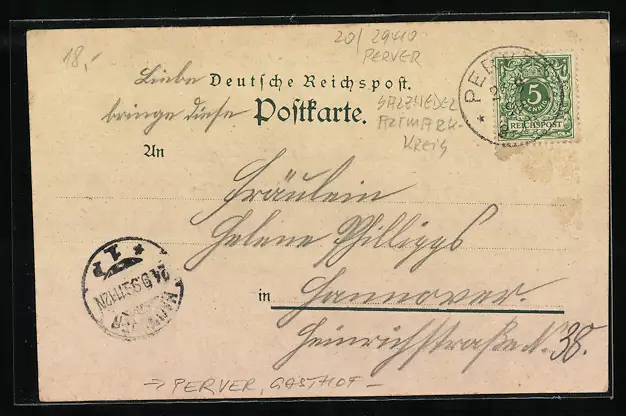 18,-
20/29410
PERVER
Liebe
Deutsche Reichspost.
bringe diese
Postkarte.
SALZWEDEL
ALTMARK-
KREIS
PER
5
REICHSPOST
An
Fräulein
Helene Philipps
in Hannover.
Heinrichstraße 38.
1 P
24.9.9
11-12N
HANNOVER
→ PERVER, GASTHOF -